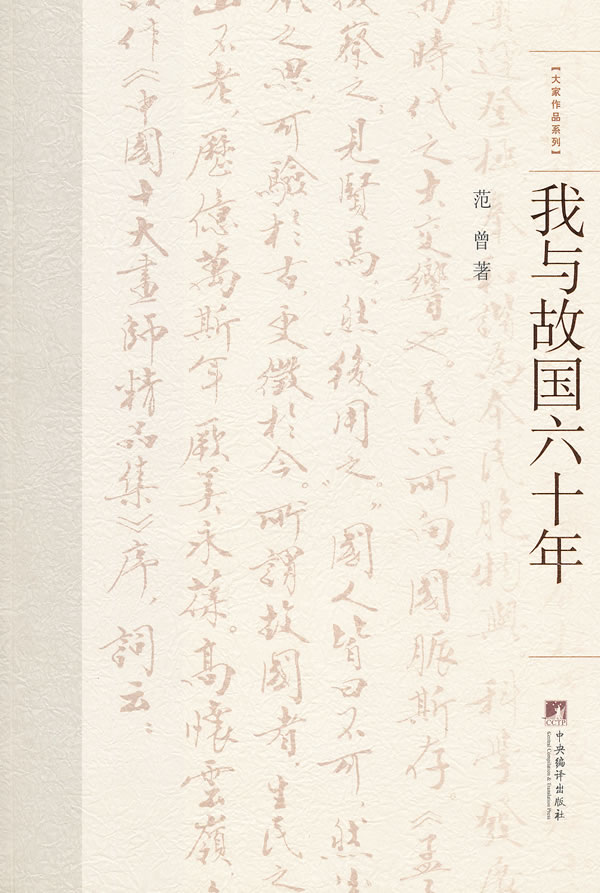 【大家作品系列】
我与故国六十年
范曾著
CCTP
中央编译出版社
Central Compilation & Translation Press
民胞物与 科學發展
時代之大交響也。民心所向,國脈斯存。《孟
後察之;見賢焉,然後用之。”國人皆曰不可,然
之思,可驗於古,更徵於今。所謂故國者,生民之
山不老,歷億萬斯年,厥美永葆。高懷雲嶺,
作《中國十大畫師精品集》序,詞云: